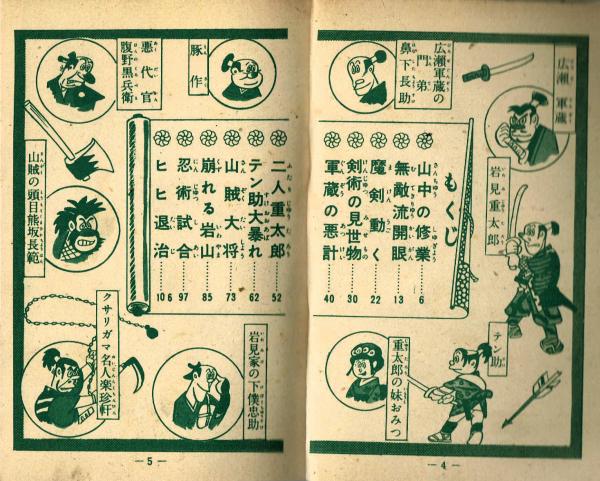 広瀬軍蔵
広瀬軍蔵の門弟
鼻下長助
岩見重太郎
もくじ
山中の修業 6
無敵流開眼 13
魔剣動く 22
剣術の見世物 30
軍蔵の悪計 40
テン助
重太郎の妹おみつ
—4—
豚作
悪代官
腹野黒兵衛
二人重太郎 52
テン助大暴れ 62
山賊大将 73
崩れる岩山 85
忍術試合 97
ヒヒ退治 106
山賊の頭目熊坂長範
クサリガマ名人楽珍軒
岩見家の下僕忠助
—5—